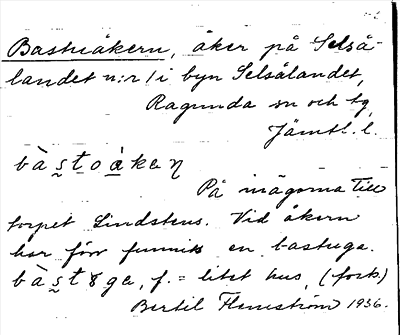 Bastuåkern, åker på Selså-
landet n:r 1 i byn Selsålandet,
Ragunda sn och tg
Jämtl. l.
bàs̰toàkeɳ
På inägorna till
torpet Lindstens. Vid åkern
har förr funnits en bastuga.
bàs̰tȣga, f. = litet hus, (fork.)
Bertil Flemström 1936.